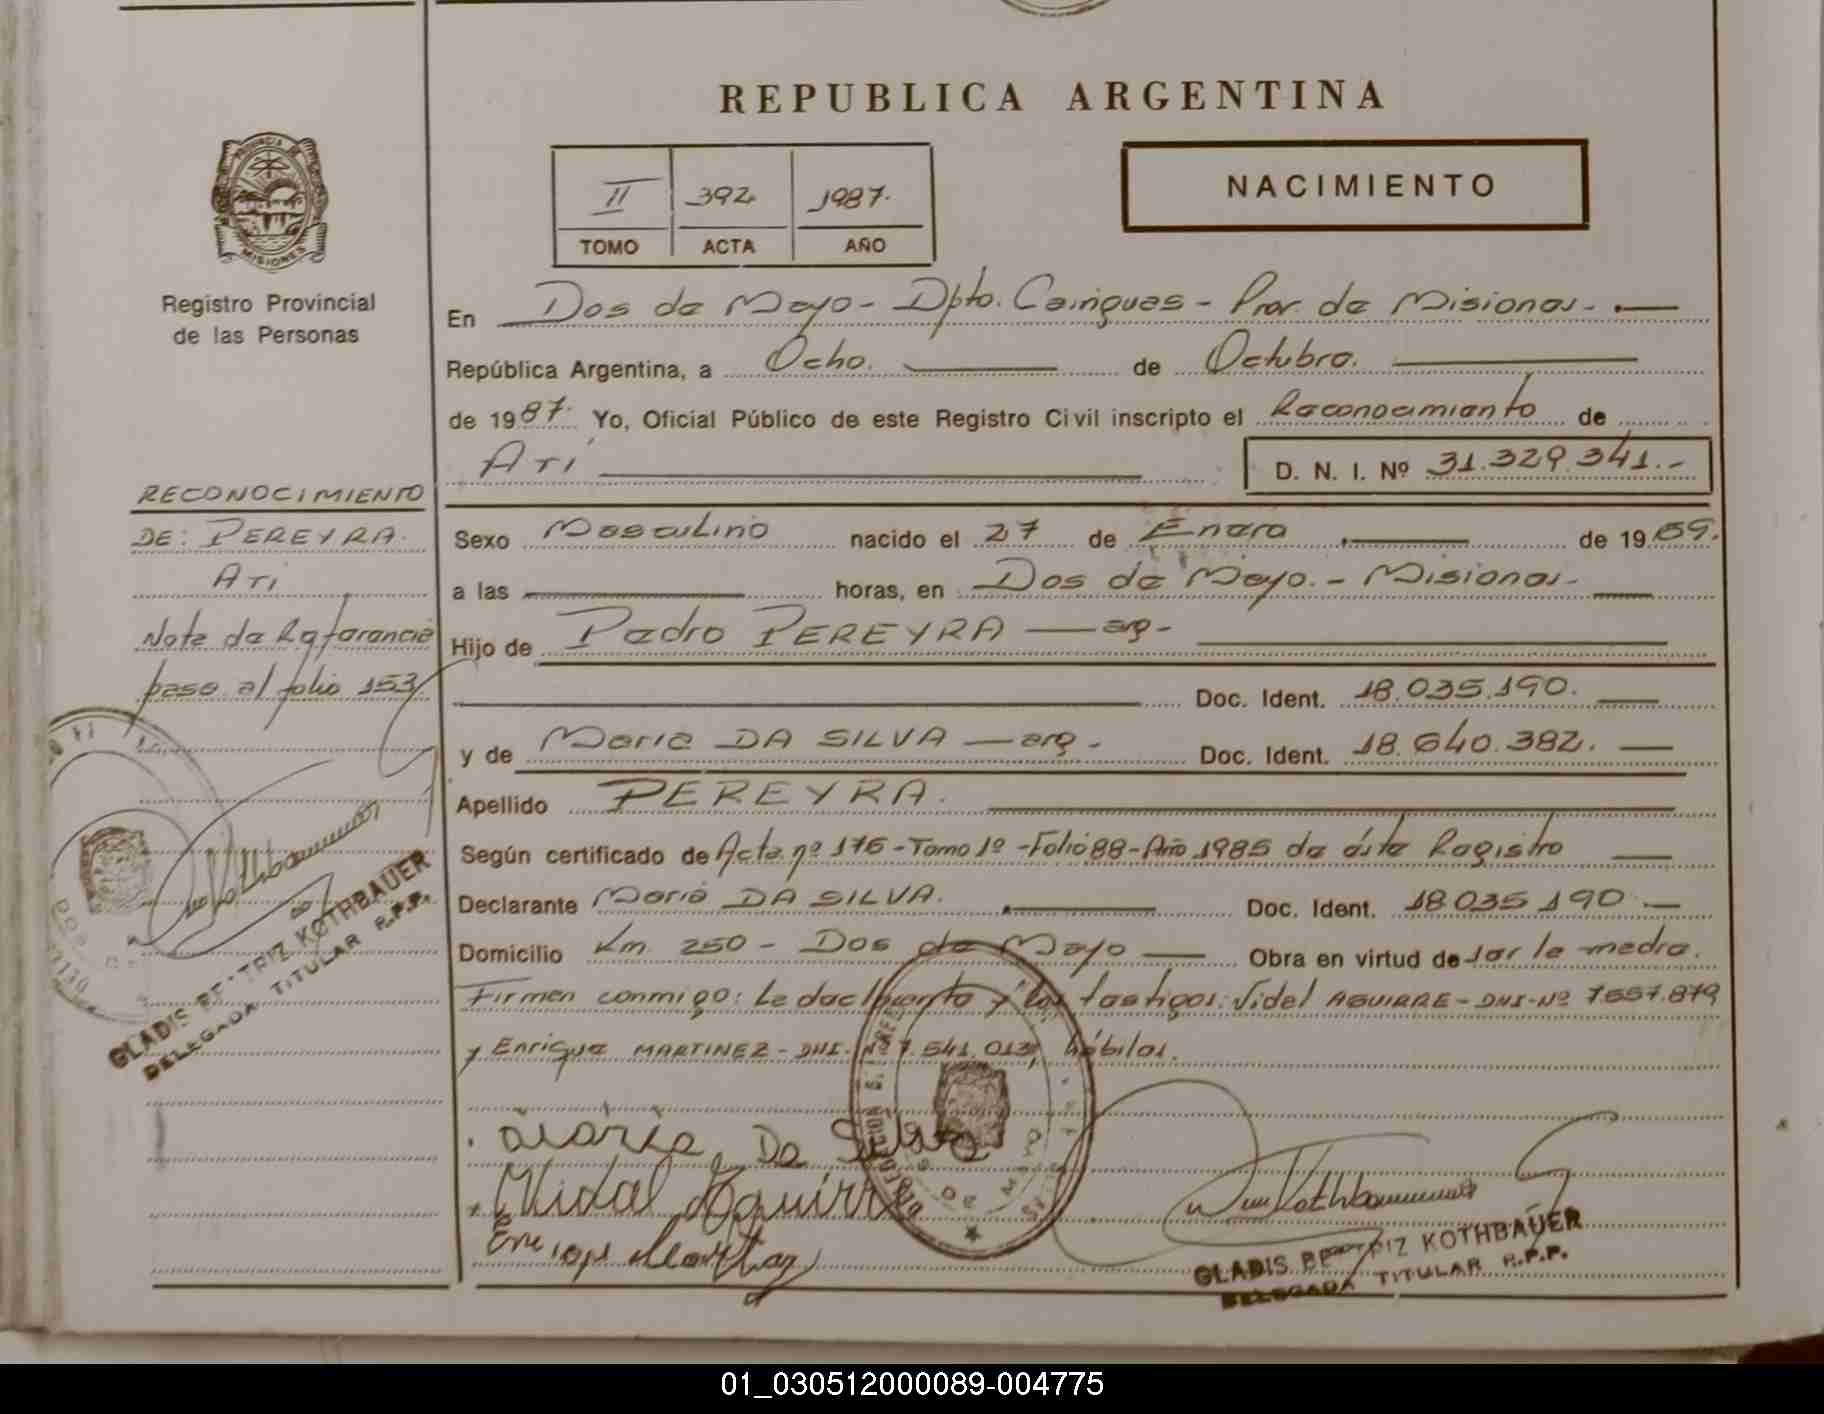 REPUBLICA ARGENTINA
NACIMIENTO
II 392 1987.
TOMO ACTA AÑO
PROVINCIA DE
MISIONES
Registro Provincial
de las Personas
En Dos de Mayo - Dpto. Cainguas - Prov. de Misiones -
República Argentina, a Ocho. de Octubre.
de 1987. Yo, Oficial Público de este Registro Civil inscripto el Reconocimiento de
Ati D. N. I. Nº 31.329.341.-
RECONOCIMIENTO
DE: PEREYRA.
Ati
Nota de Referencia
paso al folio 153
Sexo Masculino nacido el 27 de Enero de 19
a las horas, en Dos de Mayo. - Misiones -
Hijo de Pedro PEREYRA — arg -
Doc. Ident. 18.035.190.
y de Maria DA SILVA — arg - Doc. Ident. 18.640.382.
Apellido PEREYRA.
Según certificado de Acta nº 176 - Tomo 1º - Folio 88 - Año 1985 de éste Registro
Declarante Maria DA SILVA. Doc. Ident. 18 035 190
Domicilio Km. 250 - Dos de Mayo Obra en virtud de ser la madre.
Firman conmigo: La declarante y los testigos: Vidal AGUIRRE - DNI - Nº 7557.879
y Enrique MARTINEZ - DNI. Nº 7.541.013, hábiles.
Maria Da Silva
Vidal Aguirre
Enrique Martinez
GLADIS BEATRIZ KOTHBAUER
DELEGADA TITULAR R.P.P.
GLADIS BEATRIZ KOTHBAUER
DELEGADA TITULAR R.P.P.
01_030512000089-004775